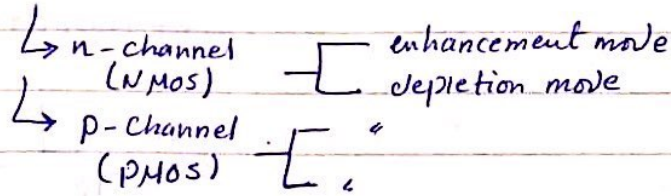 ↳ n-channel enhancement mode
(NMOS) depletion mode
↳ p-channel "
(PMOS) "